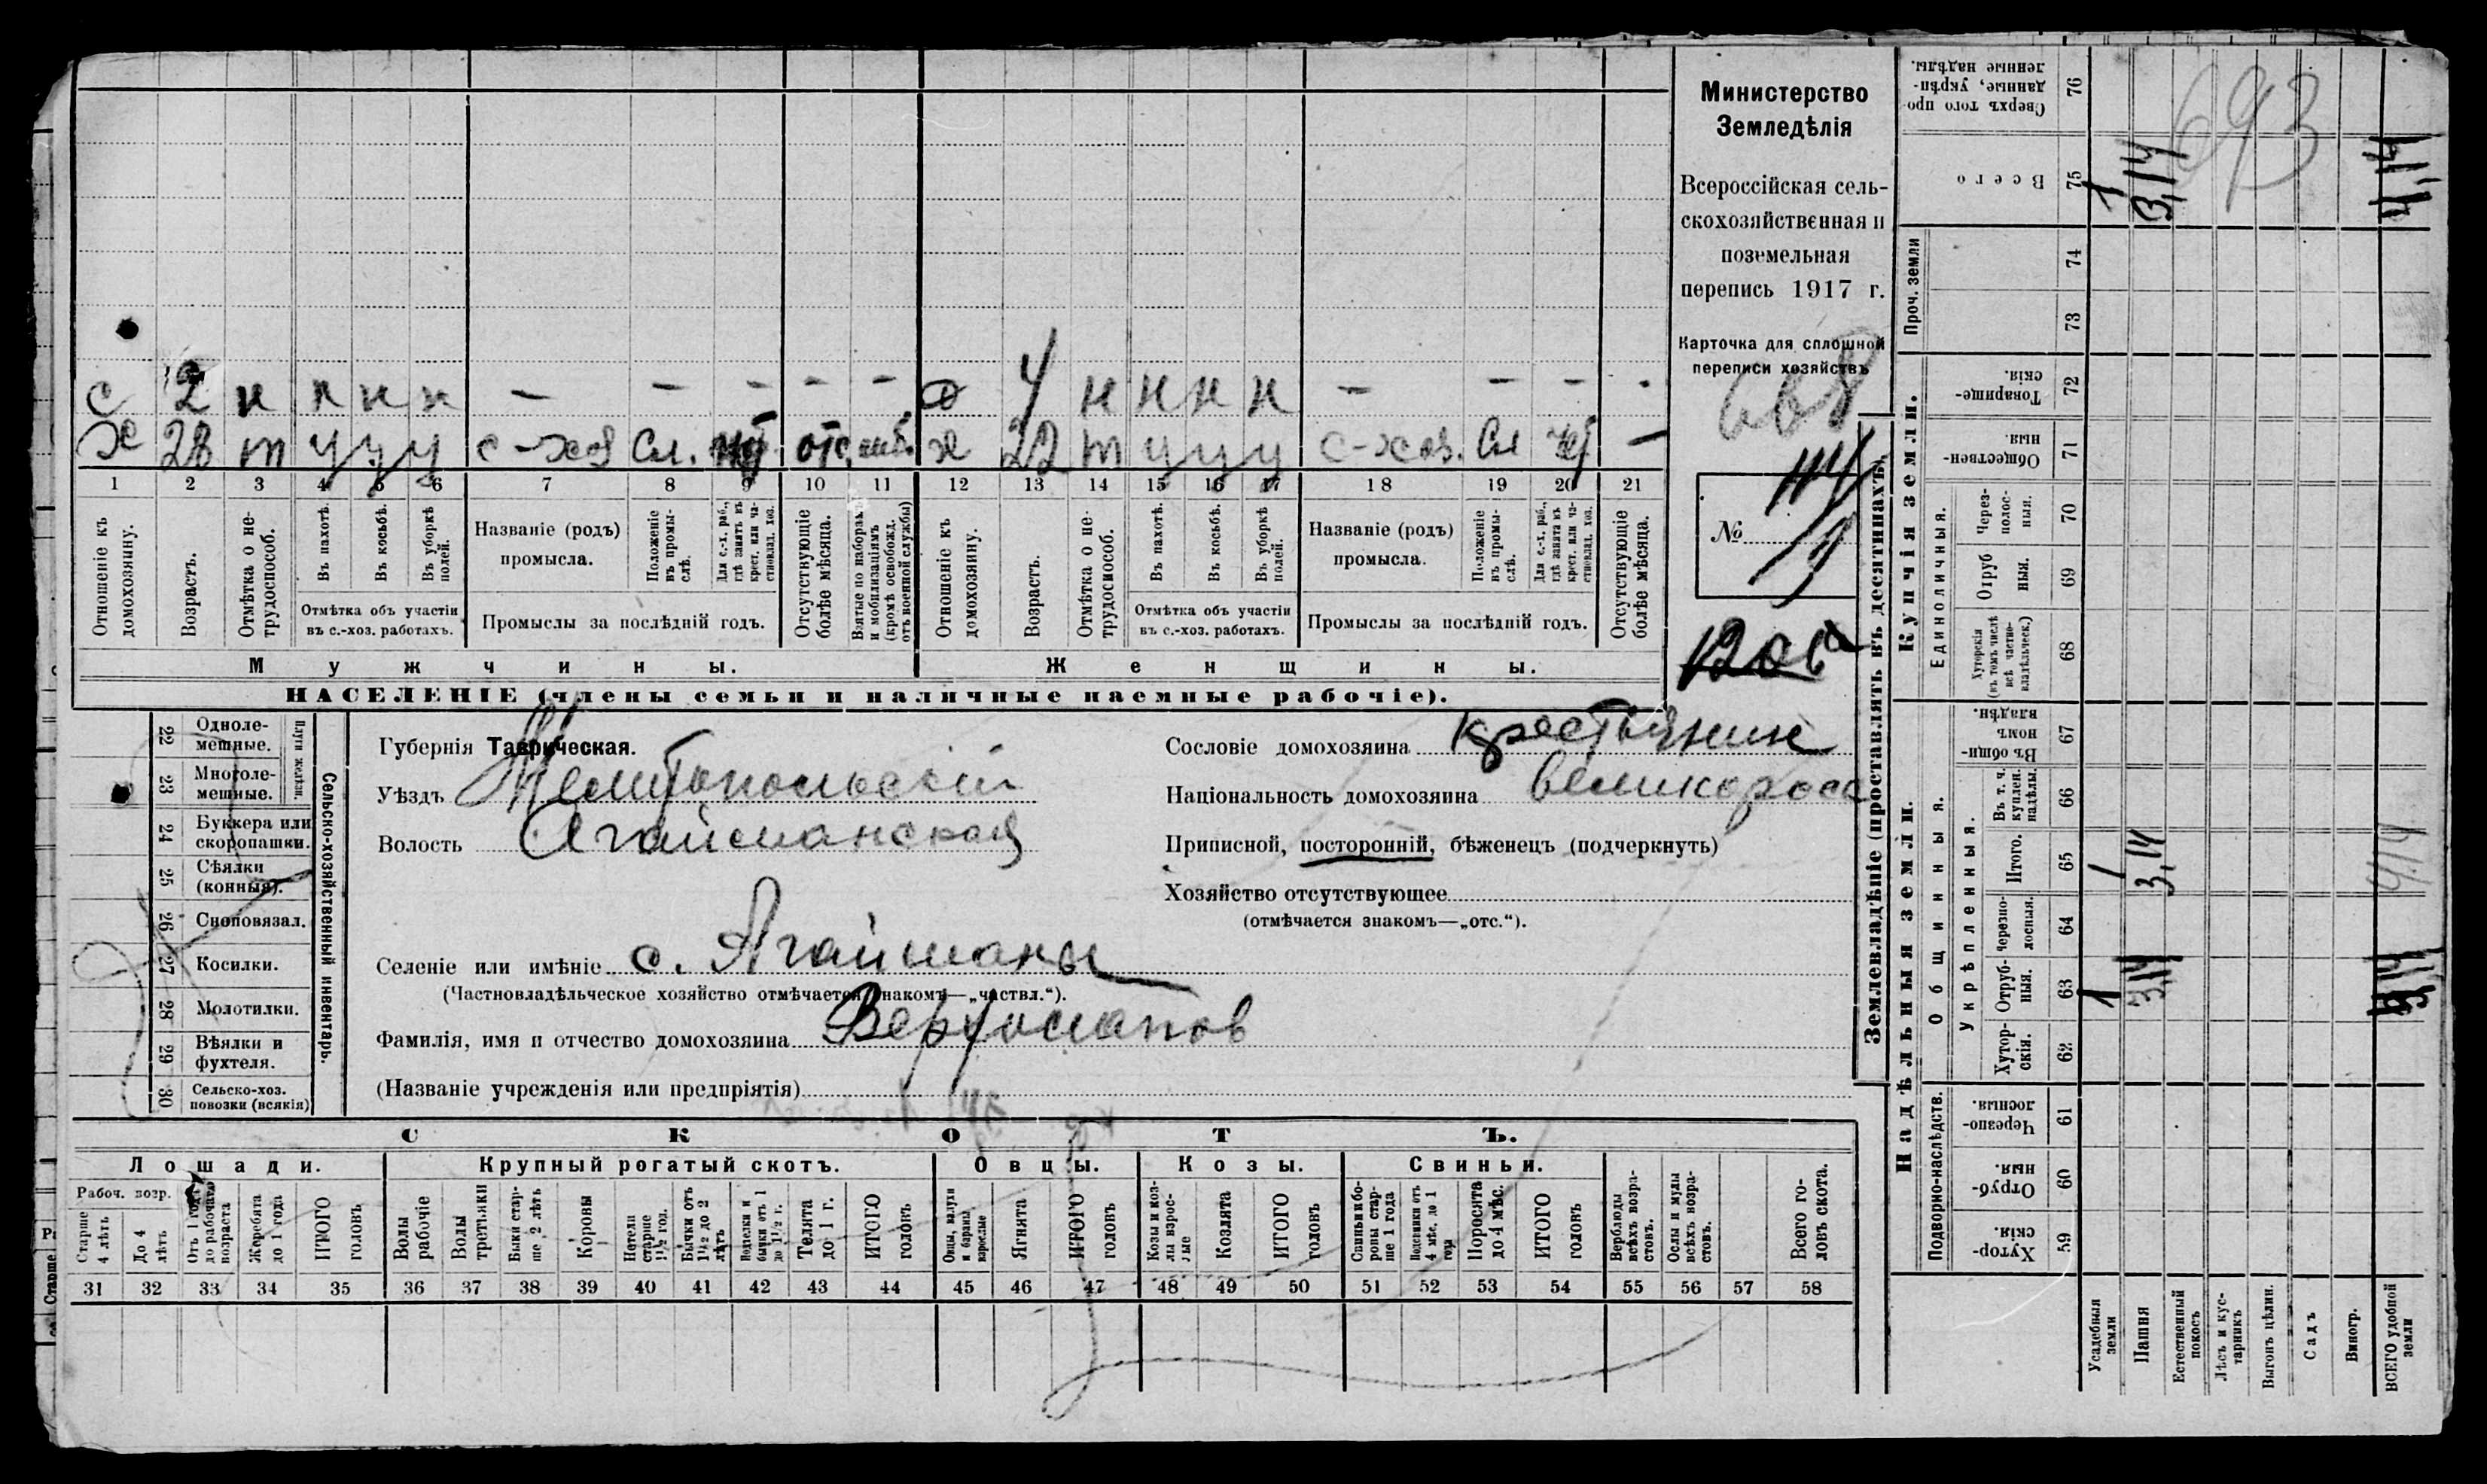 с 2 н н н н — — — — — д 4 н н н н — — —
х 28 т у у у с-хоз Сл. отс. х 22 т у у у с-хоз. Сл —
1 2 3 4 5 6 7 8 9 10 11 12 13 14 15 16 17 18 19 20 21
Отношеніе къ домохозяину.
Возрастъ.
Отмѣтка о нетрудоспособ.
Въ пахотѣ.
Въ косьбѣ.
Въ уборкѣ полей.
Отмѣтка объ участіи въ с.-хоз. работахъ.
Названіе (родъ) промысла.
Положеніе въ промыслѣ.
Для с.-х. раб., гдѣ занятъ въ крест. или частновлад. хоз.
Промыслы за послѣдній годъ.
Отсутствующіе болѣе мѣсяца.
Взятые по наборамъ и мобилизаціямъ (кромѣ освобожд. отъ военной службы)
Отношеніе къ домохозяину.
Возрастъ.
Отмѣтка о нетрудоспособ.
Въ пахотѣ.
Въ косьбѣ.
Въ уборкѣ полей.
Отмѣтка объ участіи въ с.-хоз. работахъ.
Названіе (родъ) промысла.
Положеніе въ промыслѣ.
Для с.-х. раб., гдѣ занятъ въ крест. или частновлад. хоз.
Промыслы за послѣдній годъ.
Отсутствующіе болѣе мѣсяца.
Мужчины. Женщины.
НАСЕЛЕНІЕ (члены семьи и наличные наемные рабочіе).
Министерство
Земледѣлія
Всероссійская сель-
скохозяйственная и
поземельная
перепись 1917 г.
Карточка для сплошной
переписи хозяйствъ
668
№
22 Одноле-
мешные.
23 Многоле-
мешные.
Плуги желѣзн.
24 Буккера или
скоропашки.
25 Сѣялки
(конныя).
26 Сноповязал.
27 Косилки.
28 Молотилки.
29 Вѣялки и
фухтеля.
30 Сельско-хоз.
повозки (всякія)
Сельско-хозяйственный инвентарь.
Губернія Таврическая.
Уѣздъ Мелитопольскій
Волость Агайманская
Селеніе или имѣніе с. Агайманы
(Частновладѣльческое хозяйство отмѣчается знакомъ—„частвл.“).
Фамилія, имя и отчество домохозяина
(Названіе учрежденія или предпріятія)
Сословіе домохозяина крестьянин
Національность домохозяина великоросс
Приписной, посторонній, бѣженецъ (подчеркнуть)
Хозяйство отсутствующее
(отмѣчается знакомъ—„отс.“).
СКОТЪ.
Лошади. Крупный рогатый скотъ. Овцы. Козы. Свиньи.
Рабоч. возр.
Старше 4 лѣтъ
До 4 лѣтъ
Отъ 1 года до рабочаго возраста
Жеребята до 1 года
ИТОГО головъ
Волы рабочіе
Волы третьяки
Быки старше 2 лѣтъ
Коровы
Нетели старше 1½ год.
Бычки отъ 1½ до 2 лѣтъ
Телки и бычки отъ 1 до 1½ г.
Телята до 1 г.
ИТОГО головъ
Овцы, валухи и бараны взрослые
Ягнята
ИТОГО головъ
Козы и козлы взрослые
Козлята
ИТОГО головъ
Свиньи боровы старше 1 года
Подсвинки отъ 4 мѣс. до 1 года
Поросята до 4 мѣс.
ИТОГО головъ
Верблюды всѣхъ возрастовъ.
Ослы и мулы всѣхъ возрастовъ.
Всего головъ скота.
31 32 33 34 35 36 37 38 39 40 41 42 43 44 45 46 47 48 49 50 51 52 53 54 55 56 57 58
Землевладѣніе (проставлять въ десятинахъ).
Сверхъ того проданные, укрѣпленные надѣлы. 76
Всего 75 1 3,14 4,14
693
Проч. земли
74
73
Купчія земли.
Товарищескія. 72
Общественныя 71
Единоличныя.
Черезполосныя. 70
Отрубныя. 69
Хуторскія (въ томъ числѣ всѣ частновладѣльческ.) 68
Надѣльныя земли.
Общинныя.
Въ общинномъ владѣн. 67
Укрѣпленныя.
Въ т. ч. куплен. надѣлы. 66
Итого. 65 1 3,14 4,14
Черезполосныя. 64
Отрубныя. 63 1 3,14
Хуторскія. 62
Подворно-наслѣдств.
Черезполосныя. 61
Отрубныя. 60
Хуторскія. 59
Усадебныя земли
Пашня
Естественный покосъ
Лѣсъ и кустарникъ
Выгонъ цѣлин.
Садъ
Виногр.
ВСЕГО удобной земли